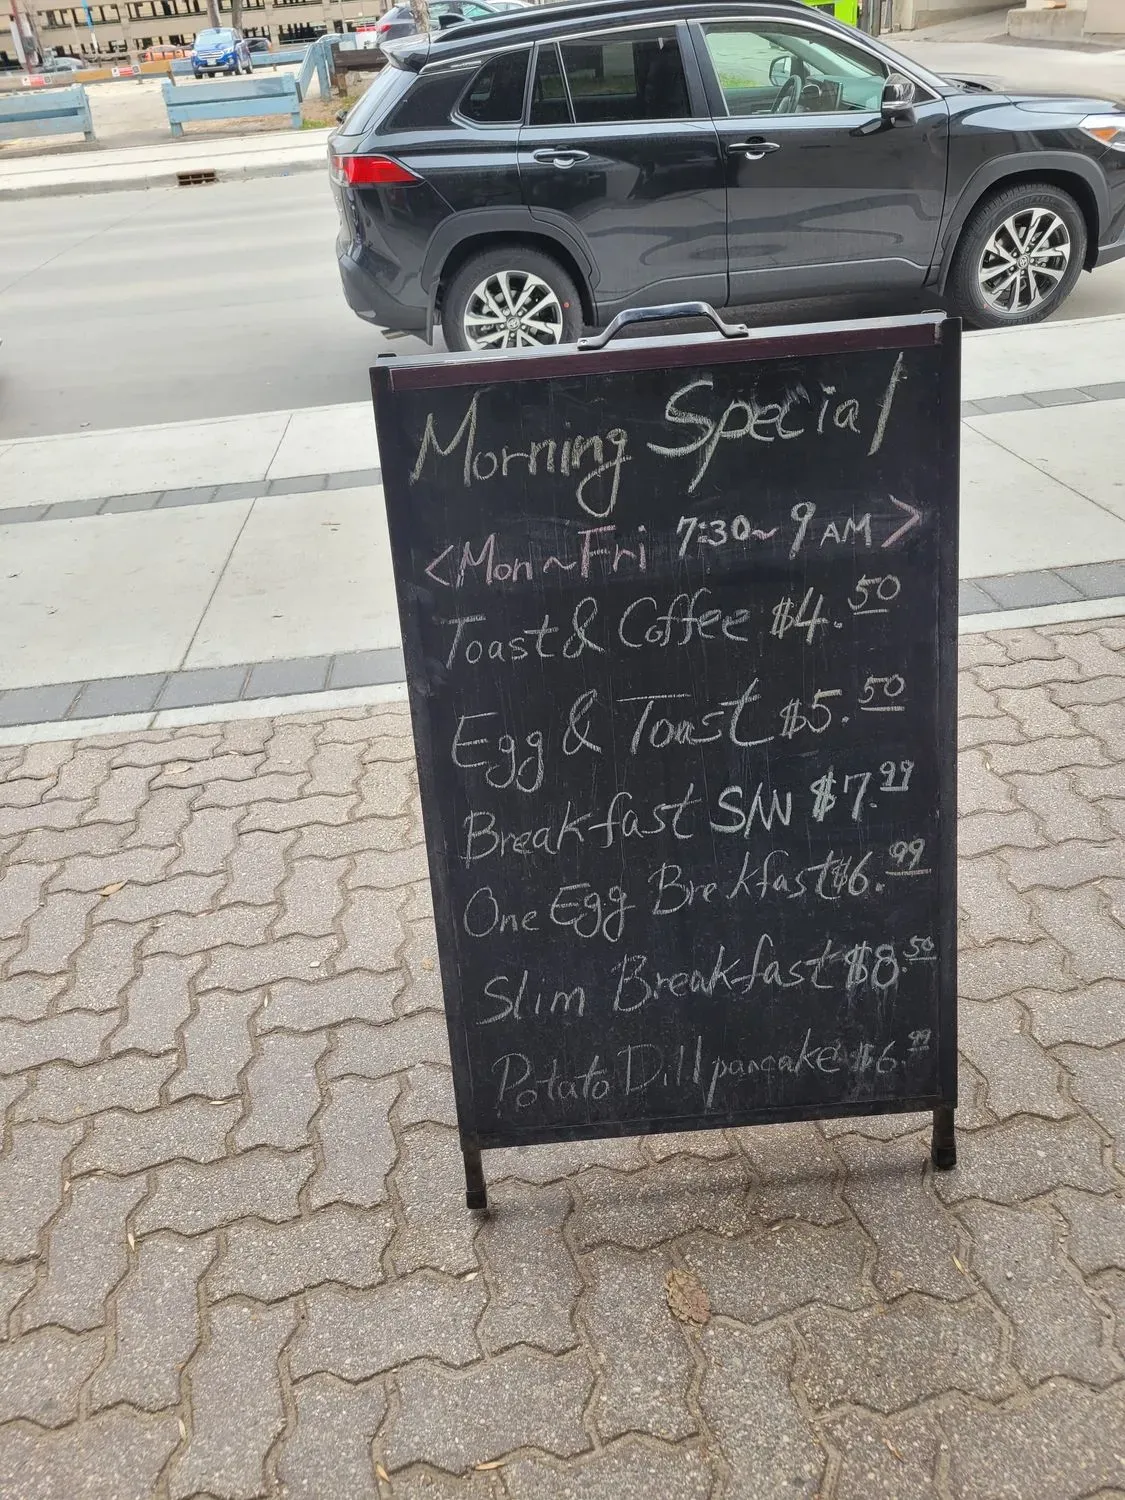 Morning Special
<Mon~Fri 7:30~9AM>
Toast & Coffee $4.50
Egg & Toast $5.50
Breakfast S/W $7.99
One Egg Brekfast $6.99
Slim Breakfast $8.50
Potato Dill pancake $6.99